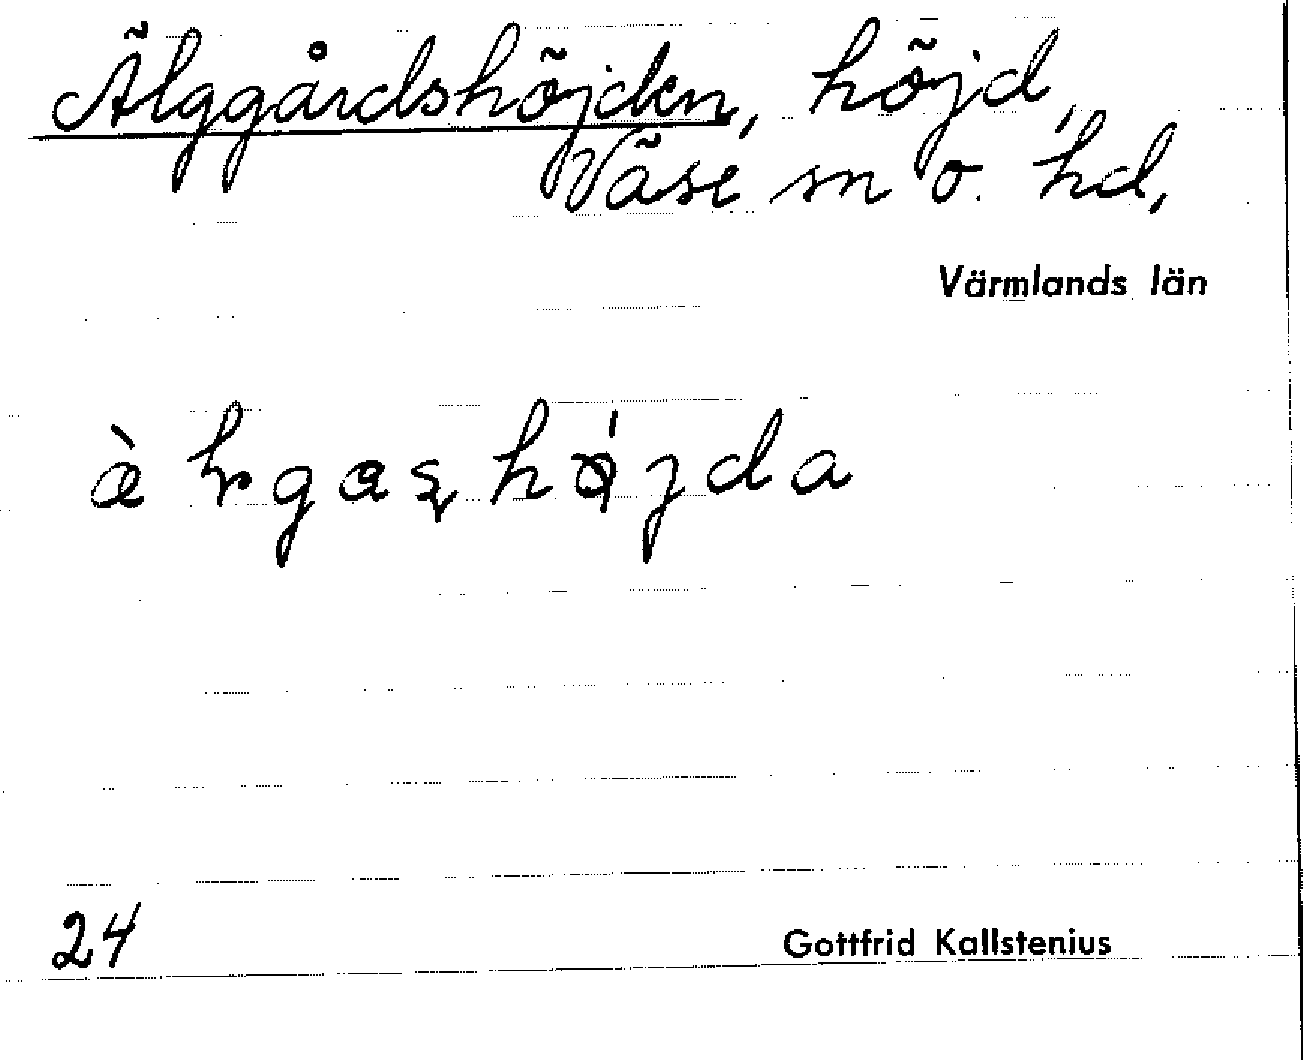 Älggårdshöjden, höjd,
Väse sn o. hd,
Värmlands län
24
Gottfrid Kallstenius